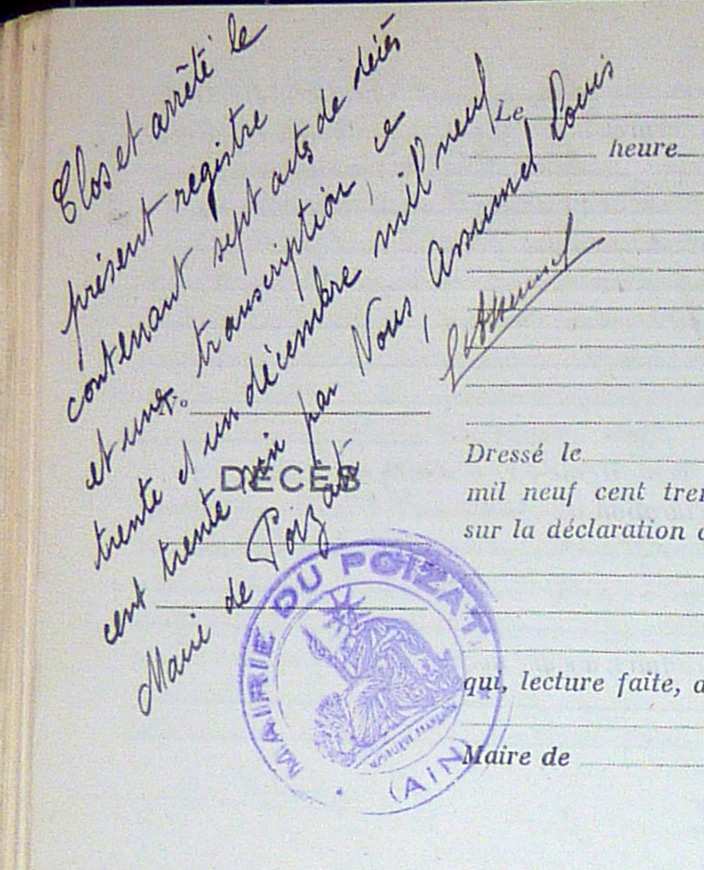 Clos et arrêté le
présent registre
contenant sept actes de décès
et une transcription, ce
trente et un décembre mil neuf
cent trente par Nous, Assumel Louis
Maire de Poizat
LAssumel
N°
DÉCÈS
MAIRIE DU POIZAT
RÉPUBLIQUE FRANÇAISE
(AIN)
Le
heure
Dressé le
mil neuf cent tren
sur la déclaration d
qui, lecture faite, a
Maire de